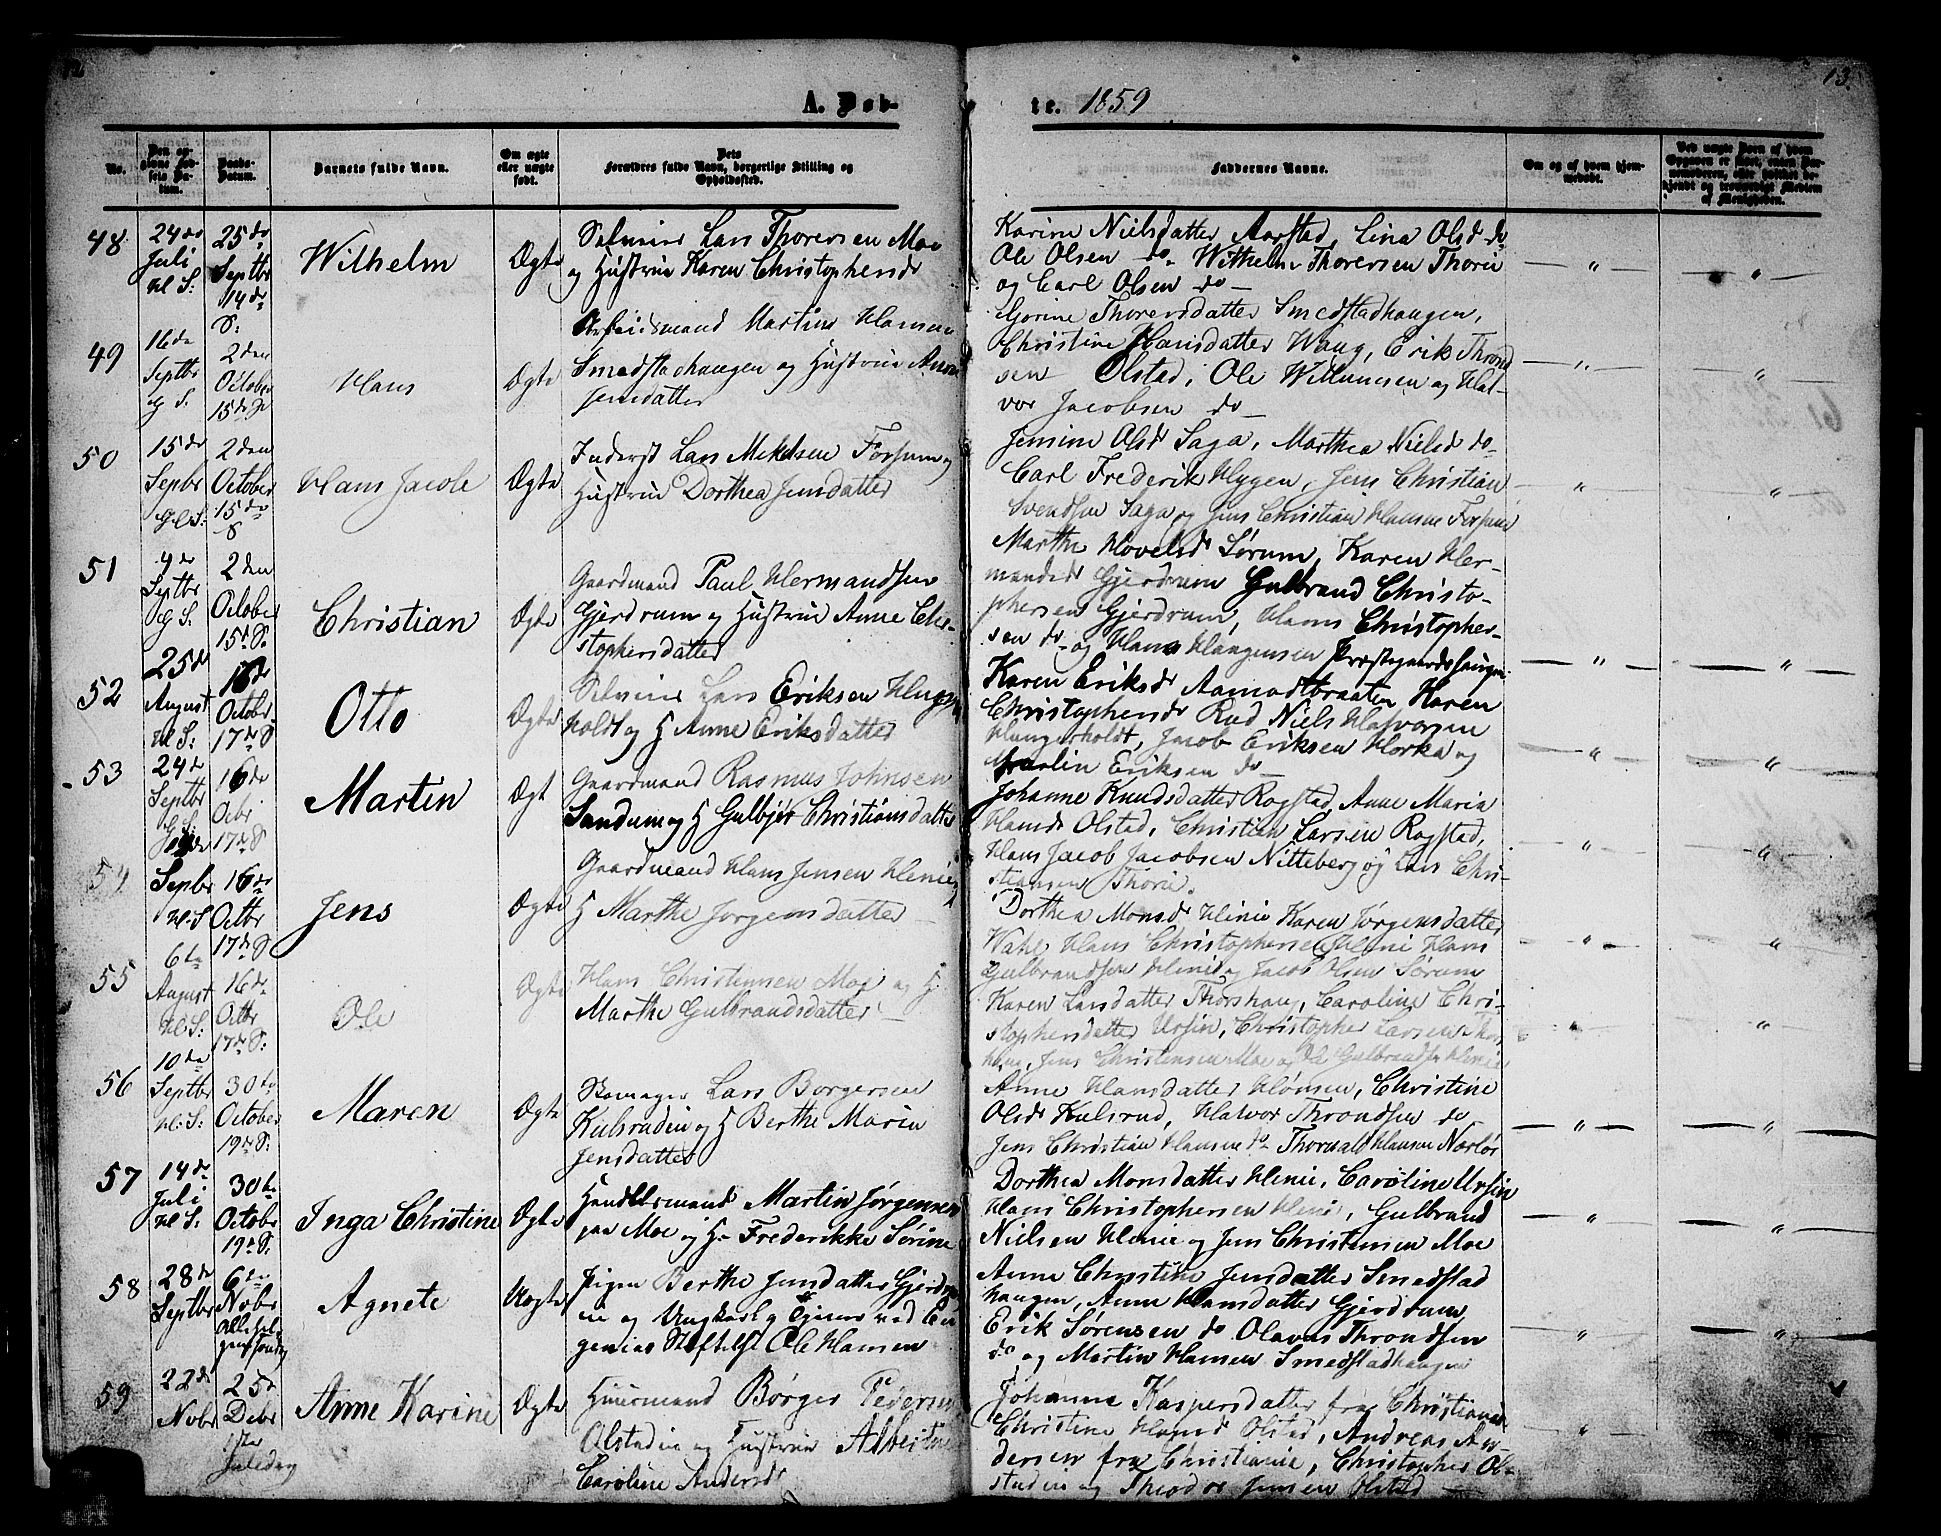 12
13
A. Døb-
te. 1859
No.
Den opgivne Fødsels Datum.
Daabs-Datum.
Barnets fulde Navn.
Om ægte eller uægte født.
Dets Forældres fulde Navn, borgerlige Stilling og Opholdssted.
Faddernes Navne.
Om og af hvem hjemmedøbt.
Ved uægte Børn af hvem Opgaven er skeet, enten Barnemoderen, eller hvilket bekjendt og troværdigt Medlem af Menigheden.
48
24de Juli
25de Septbr 14de S:
Wilhelm
Ægte
Selveier Lars Thorersen Moe
og Hustrue Karen Christophersd
Karine Nielsdatter Aarstad, Lina Olsd do
Ole Olsen do Wilhelm Thorersen Thorei
og Carl Olsen do
49
16de Septbr
2den October 15de S
Hans
Ægte
Arbeidsmand Martin Hansen
Smedstadhaugen og Hustrue Anne
Jensdatter
Gorine Thorersdatter Smedstadhaugen,
Christine Hansdatter Waug, Erik Thrond
sen Olstad, Ole Willumsen og Hal-
vor Jacobsen do
50
15de Septbr
2den October 15de S
Hans Jacob
Ægte
Inderst Lars Mikelsen Forsum og
Hustrue Dorthea Jensdatter
Jensine Olsd Saga, Marthea Nielsd do
Carl Frederik Hygen, Jens Christian
Svendsen Saga og Jens Christian Hansen
51
4de Septbr
2den October 15de S.
Christian
Ægte
Gaardmand Paul Hermandsen
Gjerdrum og Hustrue Anne Chri-
stophersdatter
Marthe Hovelsd Sørum, Karen Her-
mandsd Gjerdrum Gulbrand Christo-
phersen Gjerdrum, Hans Christopher-
sen do og Hans Haagensen Præstegaardshaugen
52
25de August
16de Octobr 17de S
Otto
Ægte
Selveier Lars Eriksen
holdt og H Anne Eriksdatter
Karen Eriksd Aamodtbraaten, Karen
Christophersd Rud Niels Halvorsen
Hungerholdt, Jacob Eriksen Horka og
Eriksen do
53
24de Septbr
16de 17de S
Martin
Ægt
Gaardmand Rasmus Johnsen
Sandum og H Gulbjør Christiansdatter
Johanne Knudsdatter Rogstad, Anne Maria
Hansd Olstad, Christian Larsen Rogstad,
Hans Jacob Jacobsen Nitteberg og Lars Chri-
stiansen Thorei.
54
Septbr
16de Octbr 17de S.
Jens
Ægte
Gaardmand Hans Jensen Henie
H Marthe Jørgensdatter
Dorthea Monsd Henie Karen Jørgensdatter
Hans Christophersen Henie Hans
Gulbrandsen Henie og Jacob Olsen Sørum
55
6te August
16de Octbr 17de S:
Ole
Ægte
Hans Christensen Moe og H
Marthe Gulbrandsdatter
Karen Larsdatter Thorshaug, Caroline Chri-
stophersdatter Ursin, Christopher Larsen Thors
haug, Jens Christensen Moe og Ole Gulbrandsen Henie
56
10de Septbr
30te October 19de S:
Maren
Ægte
Lars Borgersen
Kulsrudeie og H Berthe Maria
Jensdatter
Anne Hansdatter Hønsen, Christine
Olsd Kulsrud, Halvor Throndsen do
Jens Christian Hansen do Thorvald Hansen
57
14de Juli
30te Octobr 19de S.
Inga Christine
Ægte
Handelsmand Martin Jørgensen
paa Moe og H Frederikke Sørine
Dorthea Monsdatter Henie, Caroline Ursin
Hans Christophersen Henie, Gulbrand
Nielsen Henie og Jens Christensen Moe
58
28de Septbr
6te Novbr Allehelgensdag
Agnete
Uægte
Pigen Berthe Jensdatter
eie og Ungkarl Tjener ved Eu-
genias Stiftelse Ole Hansen
Anne Christine Jensdatter Smedstad
haugen, Anne Hansdatter Gjerdrum
Erik Sørensen do Olavus Throndsen
do og Martin Hansen Smedstadhaugen
59
22de Novbr
25de Debr 1ste Juledag
Anne Karine
Ægte
Huusmand Børger Pedersen
Olstadeie og Hustrue Albertine
Caroline Andersd
Johanne Kaspersdatter fra Christiania
Christine Hansd Olstad, Andreas An-
dersen fra Christiania, Christopher Ol-
stadeie og Theodor Jensen Olstad